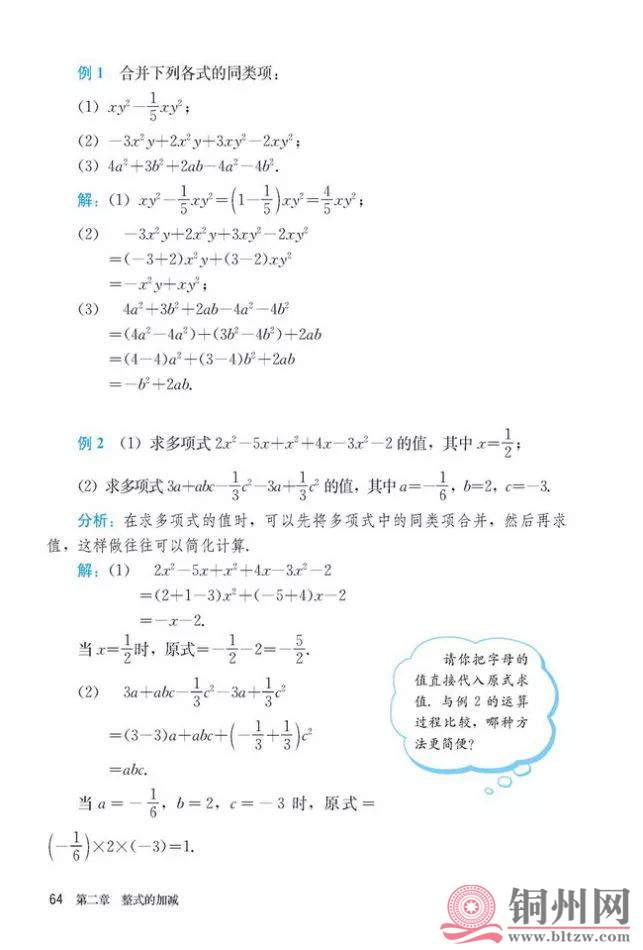 例1 合并下列各式的同类项：
(1) xy²−1/5xy²；
(2) −3x²y+2x²y+3xy²−2xy²；
(3) 4a²+3b²+2ab−4a²−4b².
解：(1) xy²−1/5xy²=(1−1/5)xy²=4/5xy²；
(2) −3x²y+2x²y+3xy²−2xy²
=(−3+2)x²y+(3−2)xy²
=−x²y+xy²；
(3) 4a²+3b²+2ab−4a²−4b²
=(4a²−4a²)+(3b²−4b²)+2ab
=(4−4)a²+(3−4)b²+2ab
=−b²+2ab.
例2 (1) 求多项式 2x²−5x+x²+4x−3x²−2 的值，其中 x=1/2；
(2) 求多项式 3a+abc−1/3c²−3a+1/3c² 的值，其中 a=−1/6，b=2，c=−3.
分析：在求多项式的值时，可以先将多项式中的同类项合并，然后再求
值，这样做往往可以简化计算.
解：(1) 2x²−5x+x²+4x−3x²−2
=(2+1−3)x²+(−5+4)x−2
=−x−2.
当 x=1/2时，原式=−1/2−2=−5/2.
(2) 3a+abc−1/3c²−3a+1/3c²
=(3−3)a+abc+(−1/3+1/3)c²
=abc.
当 a=−1/6，b=2，c=−3 时，原式=
(−1/6)×2×(−3)=1.
请你把字母的
值直接代入原式求
值. 与例 2 的运算
过程比较，哪种方
法更简便？
64 第二章 整式的加减
铜州网
www.bltzw.com